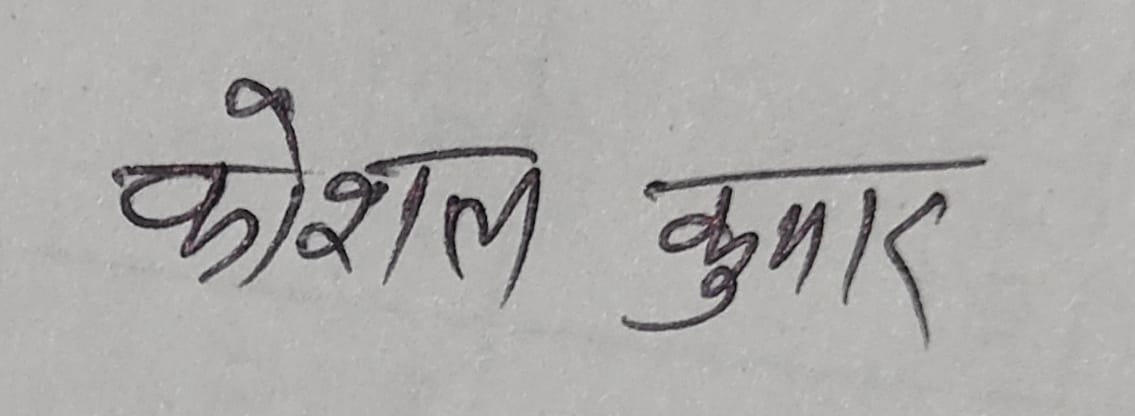 कौशल कुमार